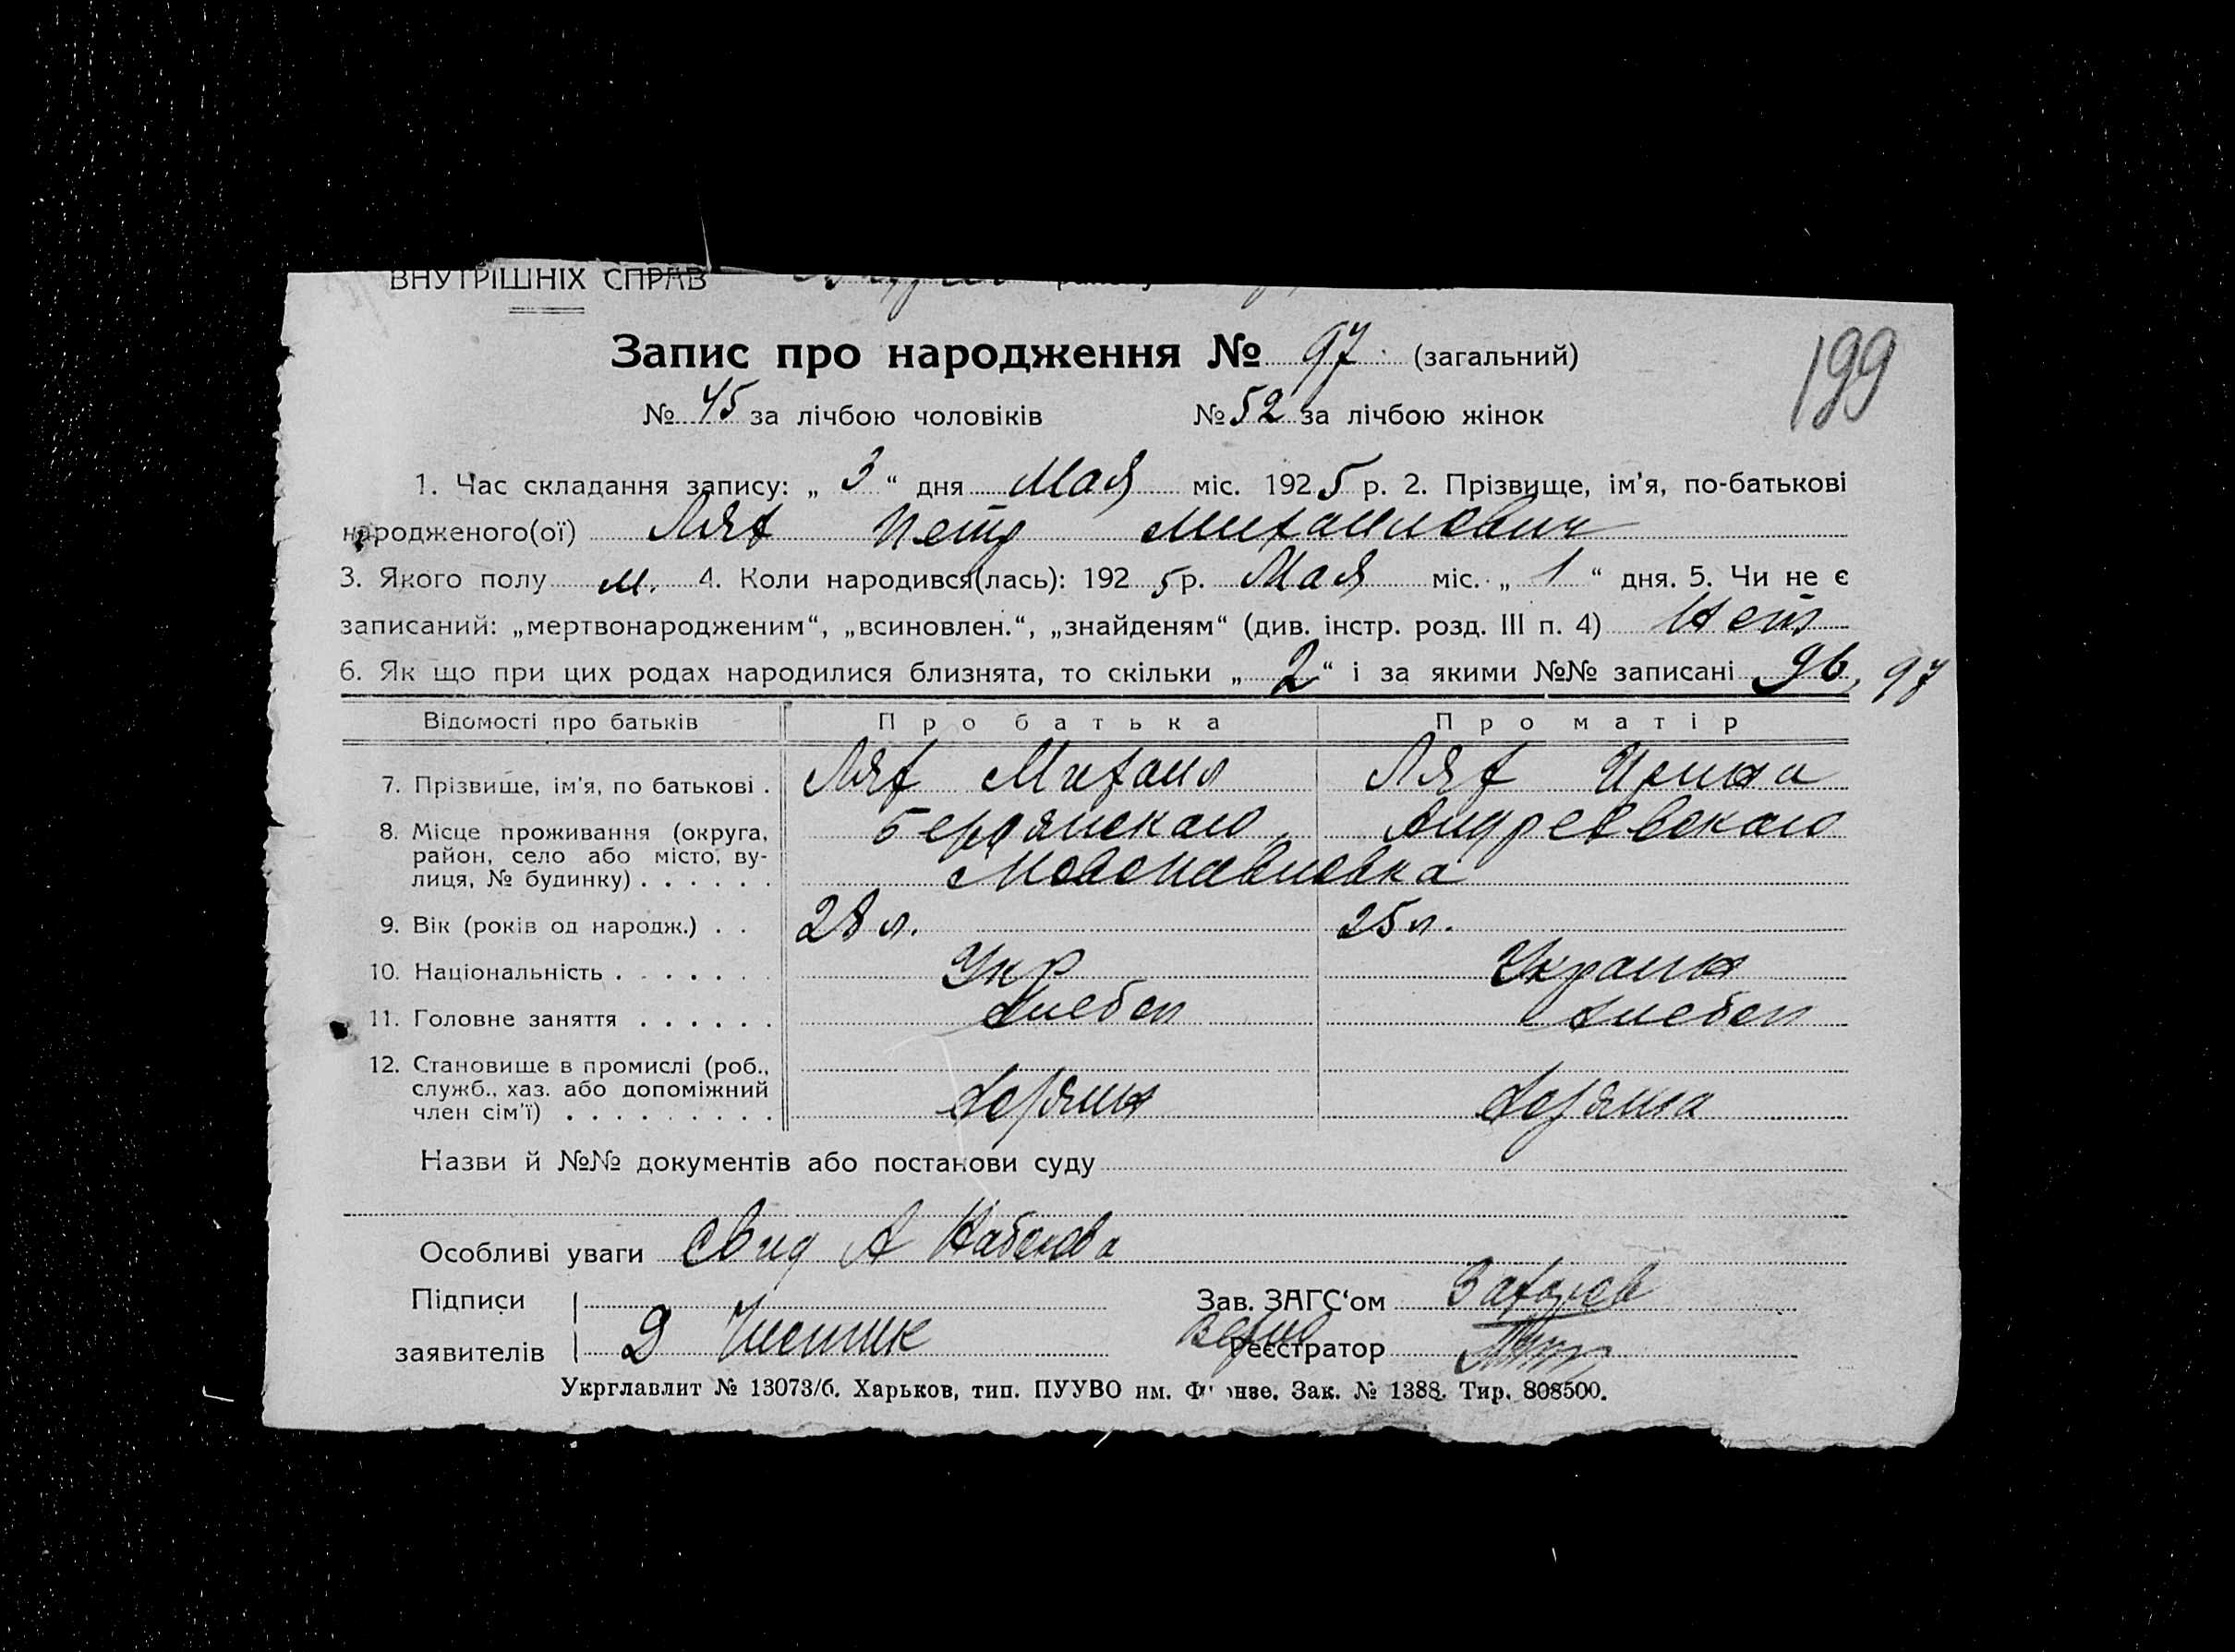 ВНУТРІШНІХ СПРАВ
Запис про народження № 97 (загальний)
199
№ 45 за лічбою чоловіків № 52 за лічбою жінок
1. Час складання запису: „ 3 “ дня Мая міс. 1925 р. 2. Прізвище, ім'я, по-батькові
народженого(ої) Лях Петр Михаилович
3. Якого полу м. 4. Коли народився(лась): 192 5 р. Мая міс. „ 1 “ дня. 5. Чи не є
записаний: „мертвонародженим“, „всиновлен.“, „знайденям“ (див. інстр. розд. III п. 4) Нет
6. Як що при цих родах народилися близнята, то скільки „ 2 “ і за якими №№ записані 96, 97
Відомості про батьків Про батька Про матір
7. Прізвище, ім'я, по батькові . Лях Михаил Лях Ирина
8. Місце проживання (округа, Бердянского, Андреевского
район, село або місто, ву-
лиця, № будинку) . . . . . . Новопавловка
9. Вік (років од народж.) . . 28 л. 25 л.
10. Національність . . . . . . . Укр Украин
11. Головне заняття . . . . . . Хлебоп Хлебоп
12. Становище в промислі (роб.,
служб., хаз. або допоміжний
член сім'ї) . . . . . . . . . Хозяин Хозяина
Назви й №№ документів або постанови суду
Особливі уваги Свид А
Підписи Зав. ЗАГС'ом
заявителів Д Реєстратор
Укрглавлит № 13073/б. Харьков, тип. ПУУВО им. Фрунзе. Зак. № 1388. Тир. 808500.